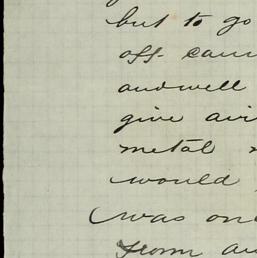 but to go
off cann
and well
give air
metal
would
(was one
from an